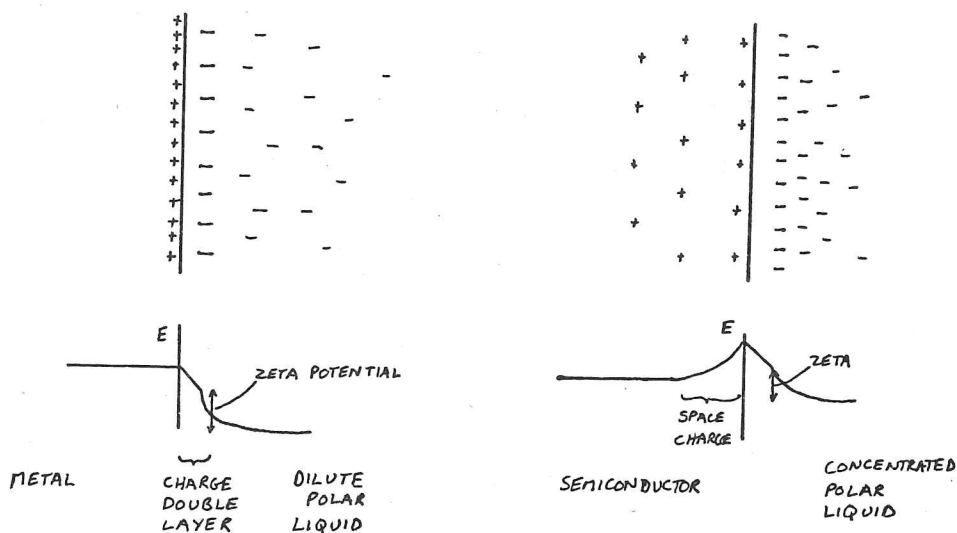 E
ZETA POTENTIAL
METAL
CHARGE
DOUBLE
LAYER
DILUTE
POLAR
LIQUID
E
ZETA
SPACE
CHARGE
SEMICONDUCTOR
CONCENTRATED
POLAR
LIQUID